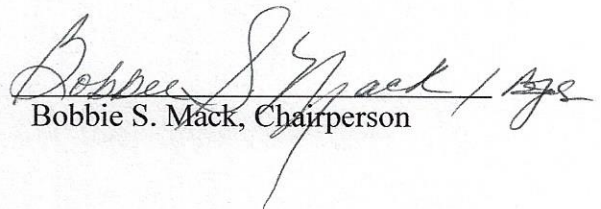 Bobbie S. Mack /
Bobbie S. Mack, Chairperson